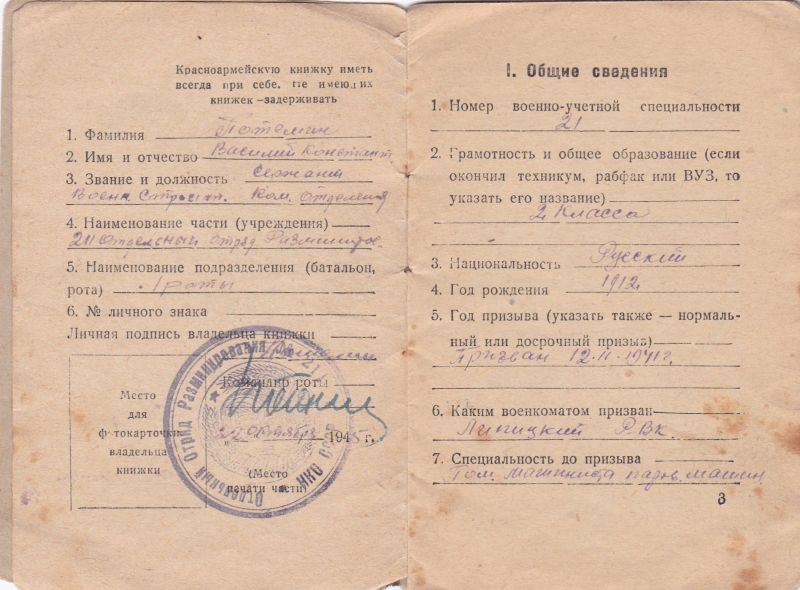 Красноармейскую книжку иметь
всегда при себе. Не имеющих
книжек —задерживать
1. Фамилия Потемкин
2. Имя и отчество Василий Констант.
3. Звание и должность Сержант
Ком. отделения
4. Наименование части (учреждения)
21 Отдельный отряд Размин
5. Наименование подразделения (батальон,
рота) 1 роты
6. № личного знака
Личная подпись владельца книжки
Командир роты
Место
для
фотокарточки
владельца
книжки
22 октября 1945 г.
(Место
печати части)
Отдельный Отряд Разминирования № 21
НКО СССР
I. Общие сведения
1. Номер военно-учетной специальности
21
2. Грамотность и общее образование (если
окончил техникум, рабфак или ВУЗ, то
указать его название)
2 класса
3. Национальность Русский
4. Год рождения 1912
5. Год призыва (указать также — нормаль-
ный или досрочный призыв)
Призван 12-II-1941г.
6. Каким военкоматом призван
Липицкий РВК
7. Специальность до призыва
Пом. машиниста паров. машин
3